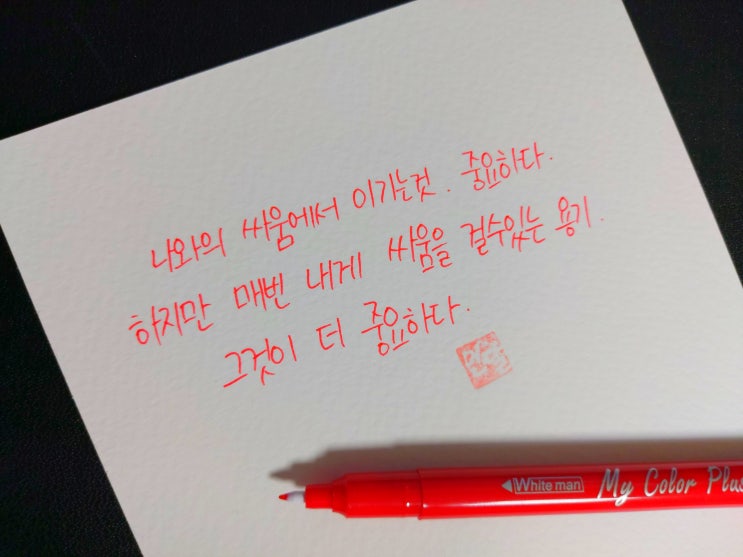 나와의 싸움에서 이기는것. 중요하다.
하지만 매번 내게 싸움을 걸수있는 용기.
그것이 더 중요하다.
White man My Color Plus